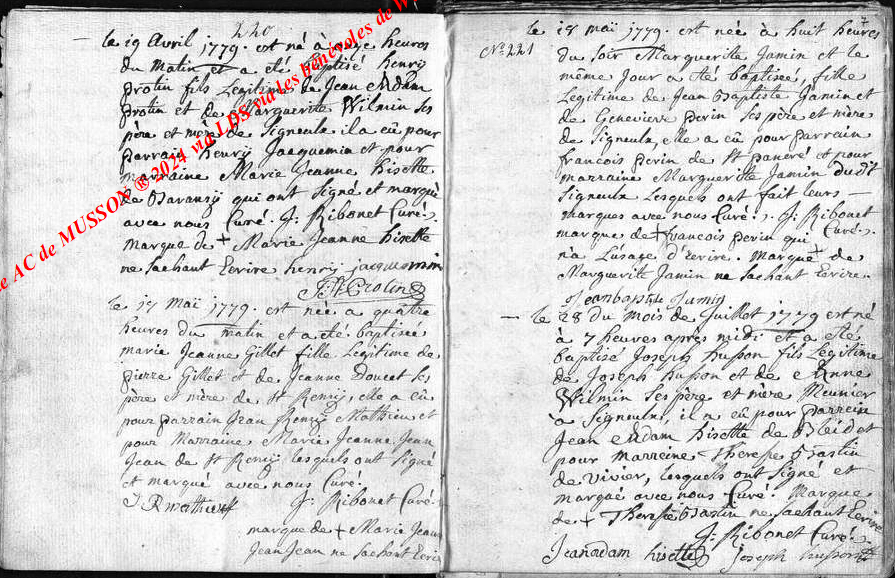 220
le 19 Avril 1779. est né à onze heures
du Matin et a eté baptisé henry
protin fils Legitime de Jean Adam
protin et de Marguerite Wilmin ses
père et mère de Signeulx il a eû pour
parrain henry Jacquemin et pour
marraine Marie Jeanne hisette
de Baranzy qui ont signé et marqué
avec nous Curé. J: Ribonet Curé.
marque de + Marie Jeanne hisette
ne sachant Ecrire henry jacquemin
le 17 Maï 1779. est née a quatre
heures du matin et a eté baptisée
marie Jeanne Gillet fille Legitime de
pierre Gillet et de Jeanne Doucet ses
père et mère de St Remy, elle a eû
pour parrain Jean Remy Mathieu et
pour Marraine Marie Jeanne Jean
Jean de St Remy lesquels ont signé
et marqué avec nous Curé.
J R mathieu
J: Ribonet Curé.
marque de + Marie Jeanne
Jean Jean ne sachant Ecrire
7
N° 221
le 18 maï 1779. est née à huit heures
du soir Marguerite Jamin et le
même jour a eté baptisée, fille
Legitime de Jean Baptiste Jamin et
de Genevieve perin ses père et mère
de Signeulx, elle a eû pour parrain
francois perin de St pancré et pour
marraine Marguerite Jamin dudit
Signeulx Lesquels ont fait leurs
marques avec nous Curé. J: Ribonet
Curé.
marque de + francois perin qui
n'a L'usage d'ecrire. Marque + de
Marguerite Jamin ne sachant Ecrire.
Jean baptiste Jamin
le 28 du mois de Juillet 1779 est né
à 7 heures après midi et a eté
baptisé Joseph husson fils Légitime
de Joseph husson et de Anne
Wilmin ses père et mère Meunier
à Signeulx, il a eû pour parrein
Jean Adam hisette de Bleid et
pour marreine Therese Bastin
de vivier, Lesquels ont signé et
marqué avec nous Curé. Marque
de + Therese Bastin ne sachant Ecrire
J: Ribonet Curé.
Jean adam hisette Joseph husson
AC de MUSSON ® 2024 via LDS via Les bénévoles de